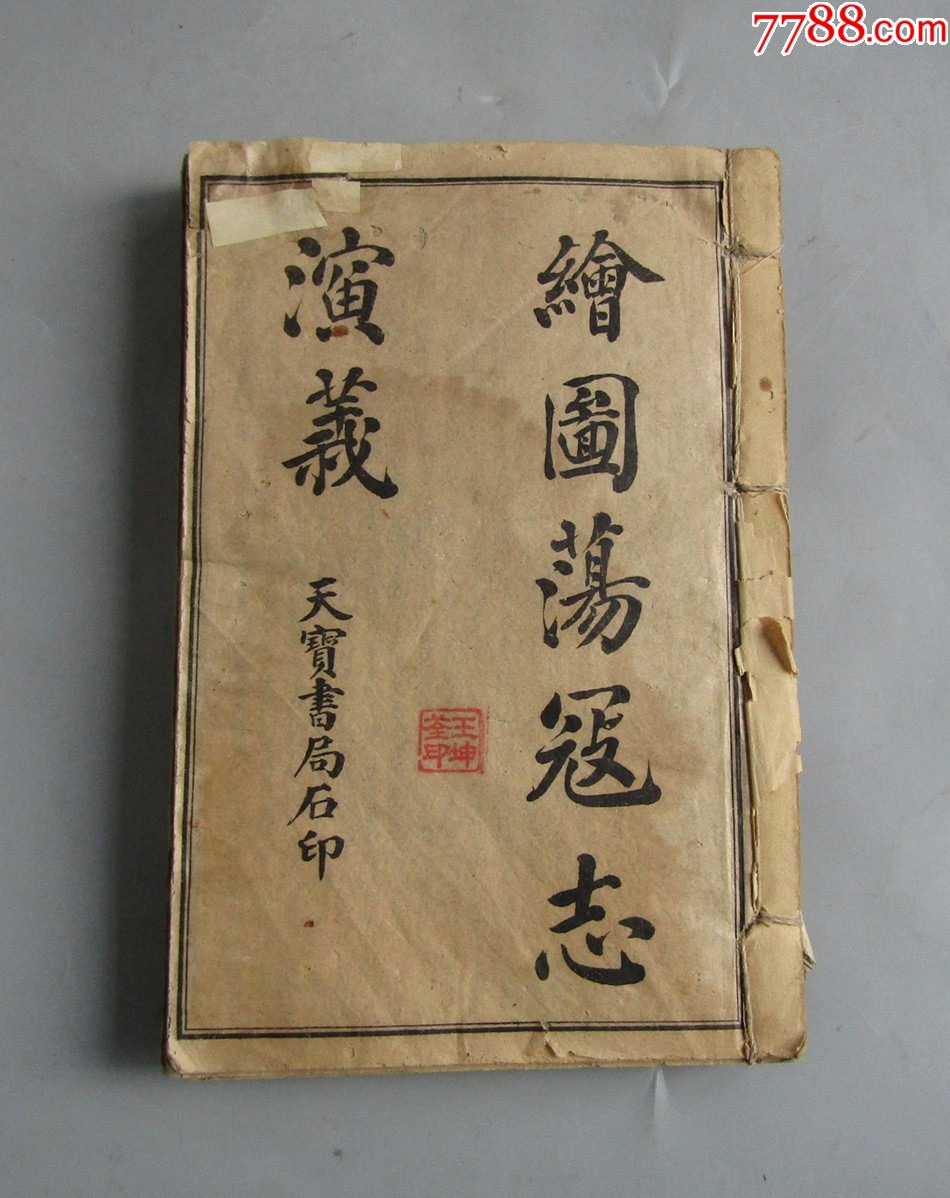 7788.com
繪圖蕩寇志
演義
天寶書局石印
王坤荃印